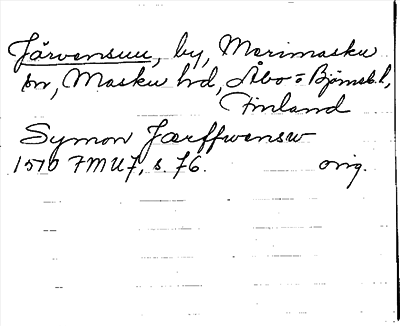 Järvensuu, by, Merimasku
sn, Masku hd, Åbo = Björneb. l,
Finland
Symon Jærffwensw
1510 FMU 7, s. 76. orig.